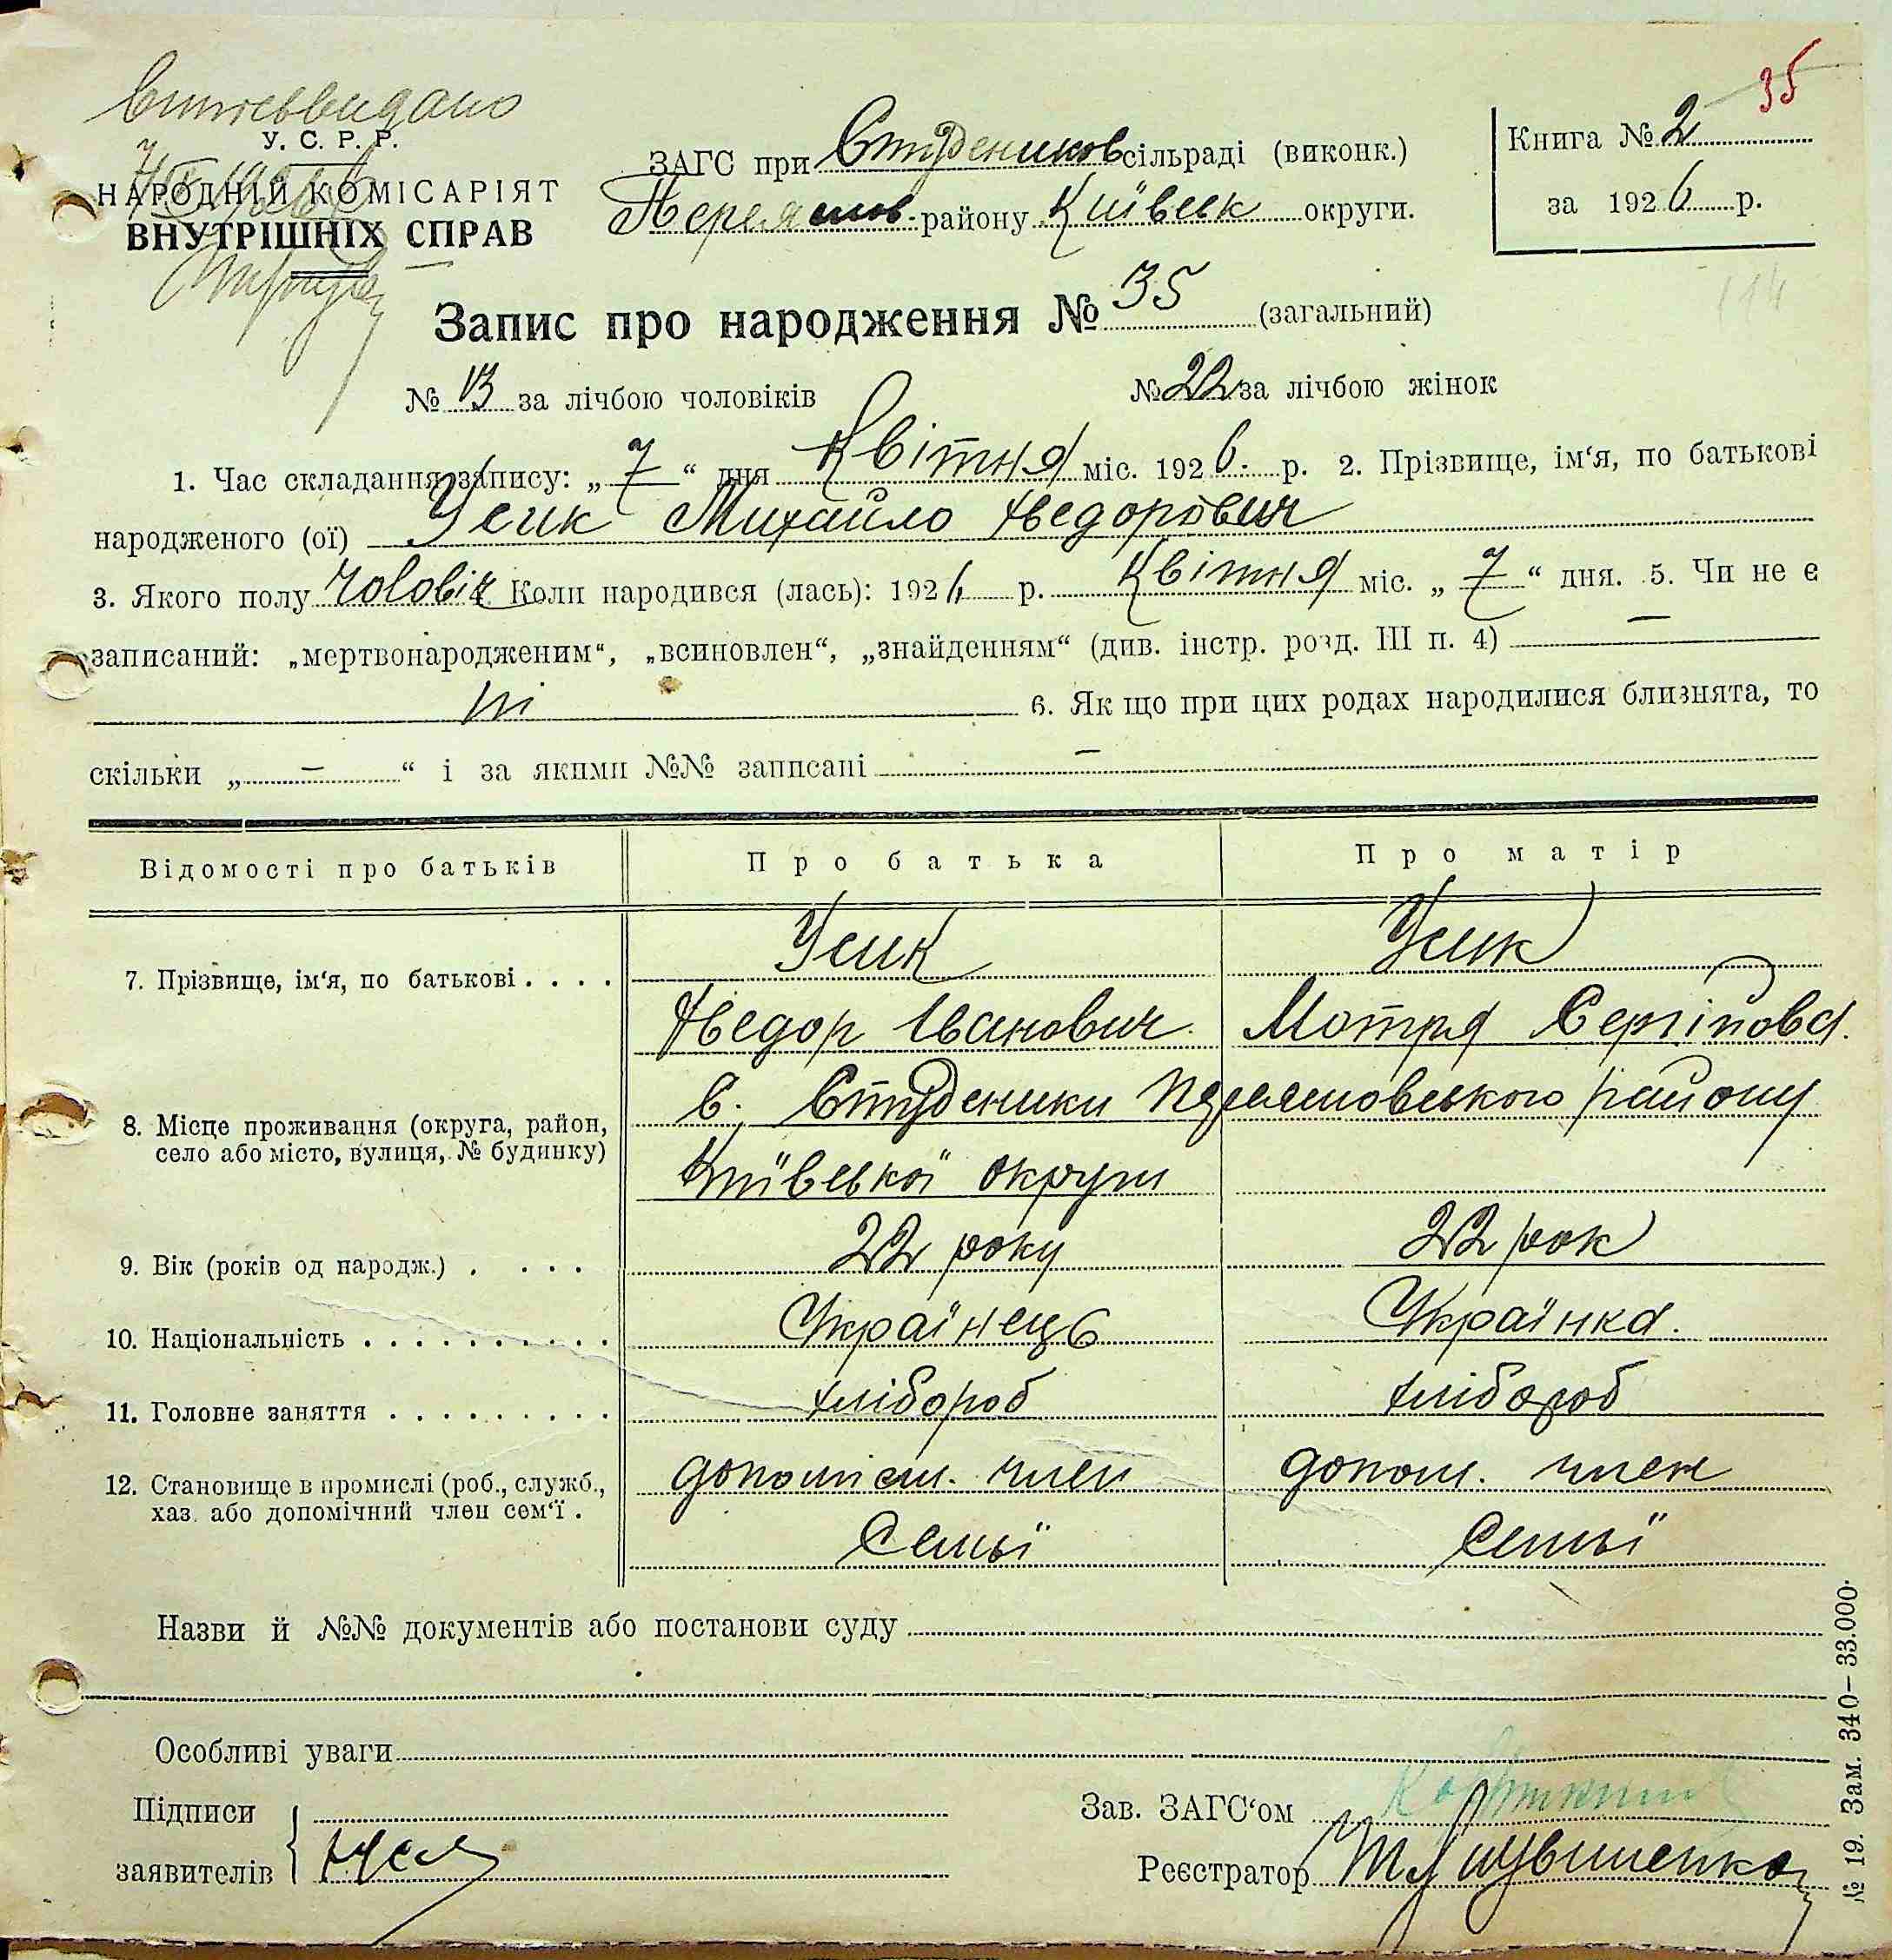 35
У. С. Р. Р.
НАРОДНІЙ КОМІСАРІЯТ
ВНУТРІШНІХ СПРАВ
ЗАГС при Студеников сільраді (виконк.)
Переяслов. району Київськ округи.
Книга № 2
за 1926 р.
114
Запис про народження № 35 (загальний)
№ 13 за лічбою чоловіків № 22 за лічбою жінок
1. Час складання запису: „ 7 “ дня Квітня міс. 1926. р. 2. Прізвище, ім‘я, по батькові
народженого (ої) Усик Михайло Хведорович
3. Якого полу чоловіч 4. Коли народився (лась): 1926 р. Квітня міс. „ 7 “ дня. 5. Чи не є
записаний: „мертвонародженим“, „всиновлен“, „знайденням“ (див. інстр. розд. III п. 4) —
ні 6. Як що при цих родах народилися близнята, то
скільки „ — “ і за якими №№ записані —
Відомості про батьків Про батька Про матір
7. Прізвище, ім‘я, по батькові . . . . Усик Усик
Хведор Іванович. Мотря Сергіповна.
8. Місце проживання (округа, район, с. Студеники Переясловського району
село або місто, вулиця, № будинку) Київської округи
9. Вік (років од народж.) . . . . 22 року 22 рок
10. Національність . . . . . . . . . . Українець Українка.
11. Головне заняття . . . . . . . . . хлібороб хлібороб
12. Становище в промислі (роб., служб., допоміжн. член допом. член
хаз. або допомічний член сем‘ї . Семьї семьї
Назви й №№ документів або постанови суду
Особливі уваги
Підписи
заявителів
Зав. ЗАГС‘ом
Реєстратор
№ 19. Зам. 340—33.000.